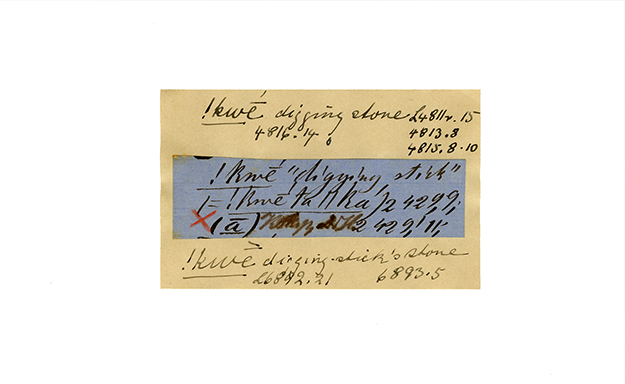 !kwē digging stone L4811r.15
4816.14 4813.8
4815.8-10
!kwé "digging stick"
(=!kwé ta ǁka) 2 4299.
(ā) 2 4291.
!kwē digging-stick's stone
L6892.21 6893.5